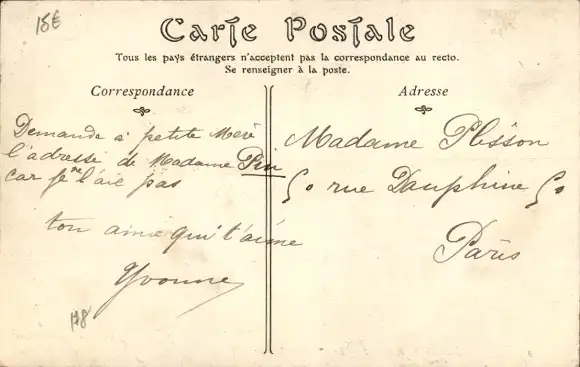 18€
Carte Postale
Tous les pays étrangers n'acceptent pas la correspondance au recto.
Se renseigner à la poste.
Correspondance
Demande à petite Mère
l'adresse de Madame Pin
car je ne l'aie pas
ton amie qui t'aime
Yvonne
Adresse
Madame Plisson
50 rue Dauphine 50
Paris